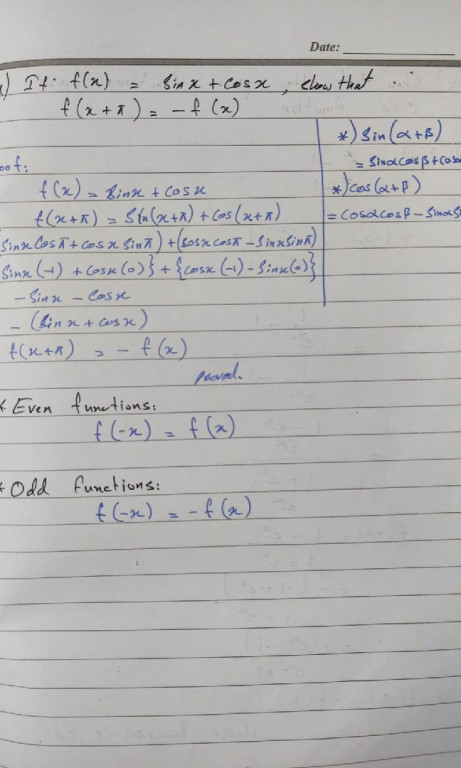 Date:
) If f(x) = Sin x + Cos x, show that
f(x+π) = -f(x)
*) Sin(α+β)
= Sinα Cosβ + Cosα
*) Cos(α+β)
= Cosα Cosβ - Sinα Si
oof:
f(x) = Sin x + Cos x
f(x+π) = Sin(x+π) + Cos(x+π)
Sinx Cosπ + Cosx Sinπ) + (Cosx Cosπ - Sinx Sinπ)
Sinx(-1) + Cosx(0)} + {Cosx(-1) - Sinx(0)}
- Sin x - Cos x
- (Sin x + Cos x)
f(x+π) = -f(x)
proved.
* Even functions:
f(-x) = f(x)
* Odd functions:
f(-x) = -f(x)